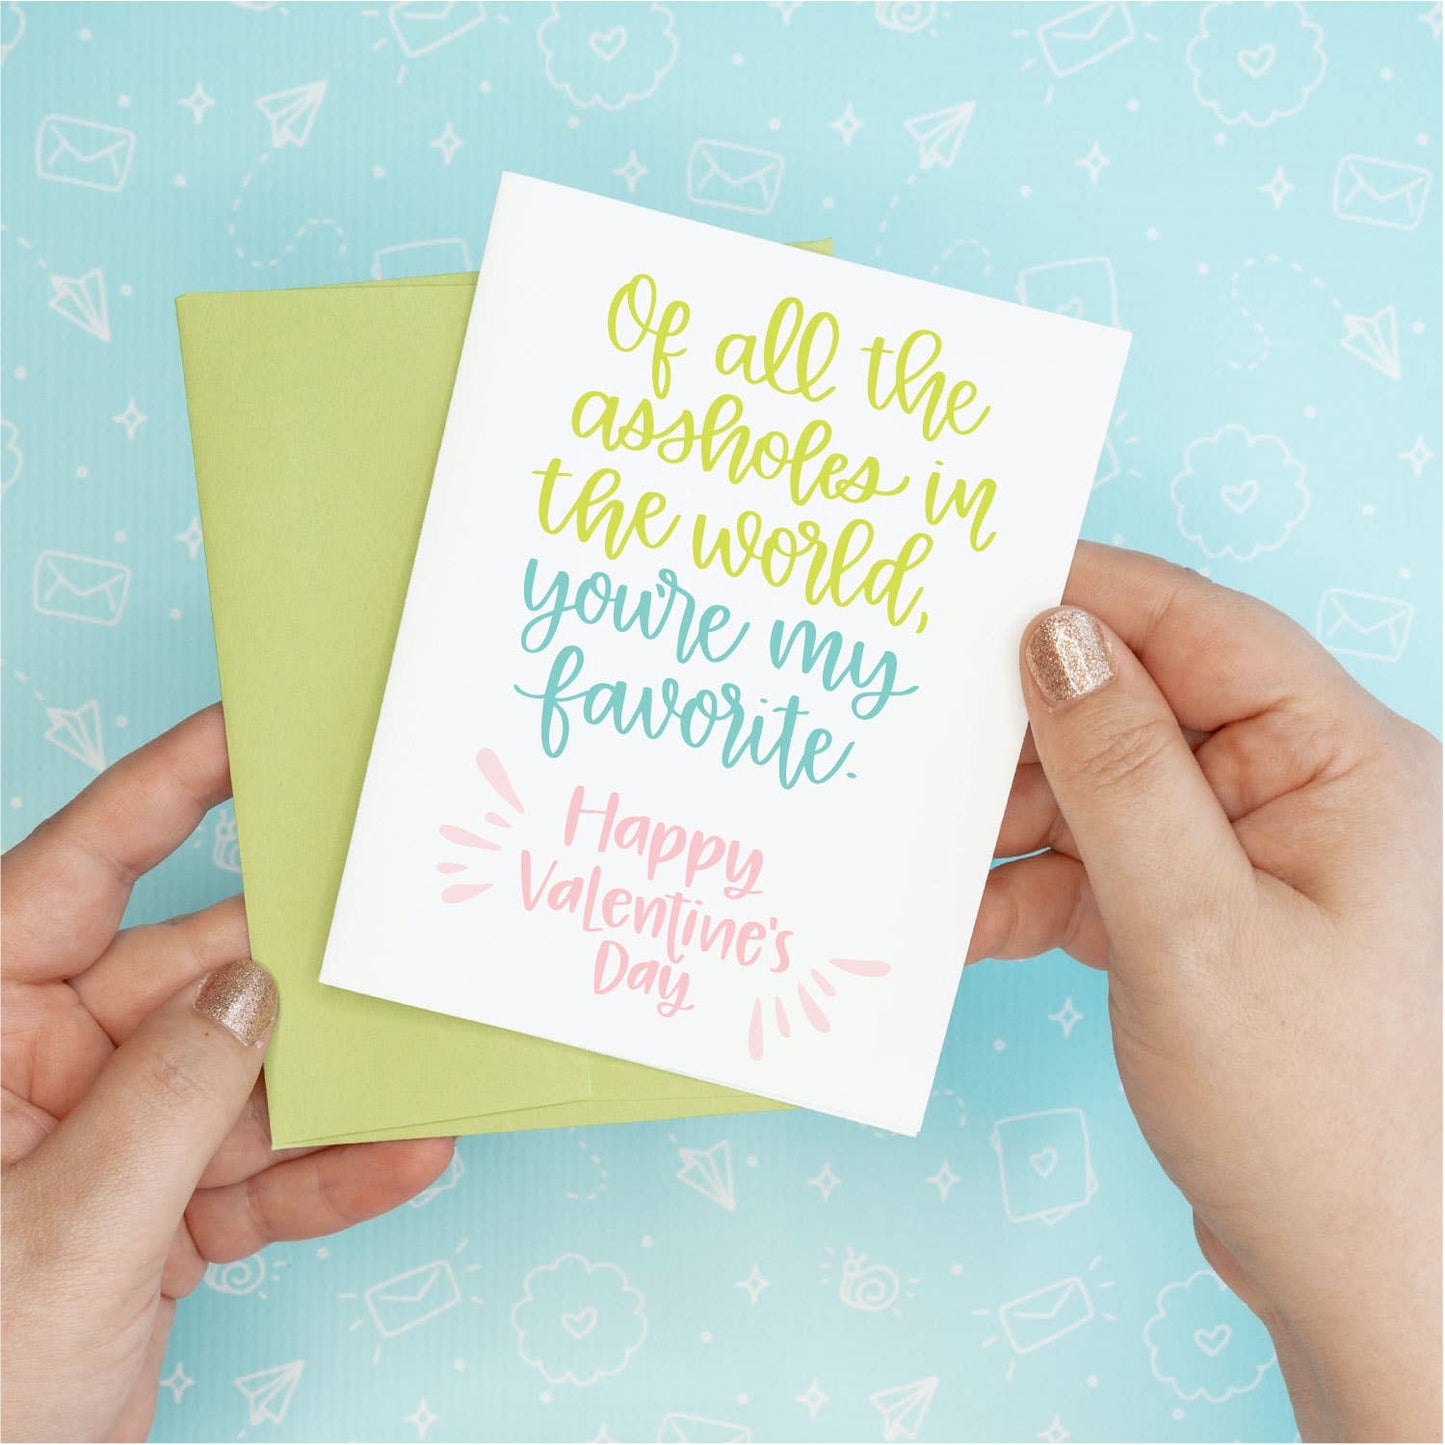 Of all the
assholes in
the world,
you're my
favorite.
Happy
Valentine's
Day